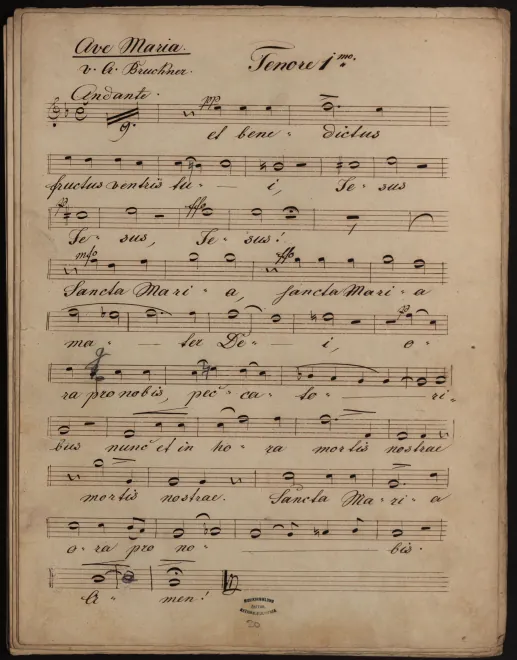 Ave Maria.
v. A. Bruckner.
Tenore 1mo.
Andante.
pp
9.
et bene- dictus
fructus ventris tu- i, Je- sus
p ff
Je- sus, Je- sus!
mf ff
Sancta Mari- a, sancta Mari- a
ma- ter De- i, o-
pp
ra pro nobis, pec- ca- to- ri-
bus nunc et in ho- ra mortis nostrae
mortis nostrae. Sancta Ma- ri- a
o- ra pro no- bis.
A- men!
20